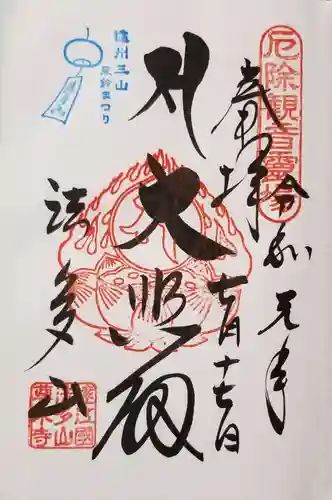 厄除観音霊場
奉拝
令和元年
七月十七日
大悲殿
法多山
遠州三山
風鈴まつり
遠江國
法多山
尊永寺